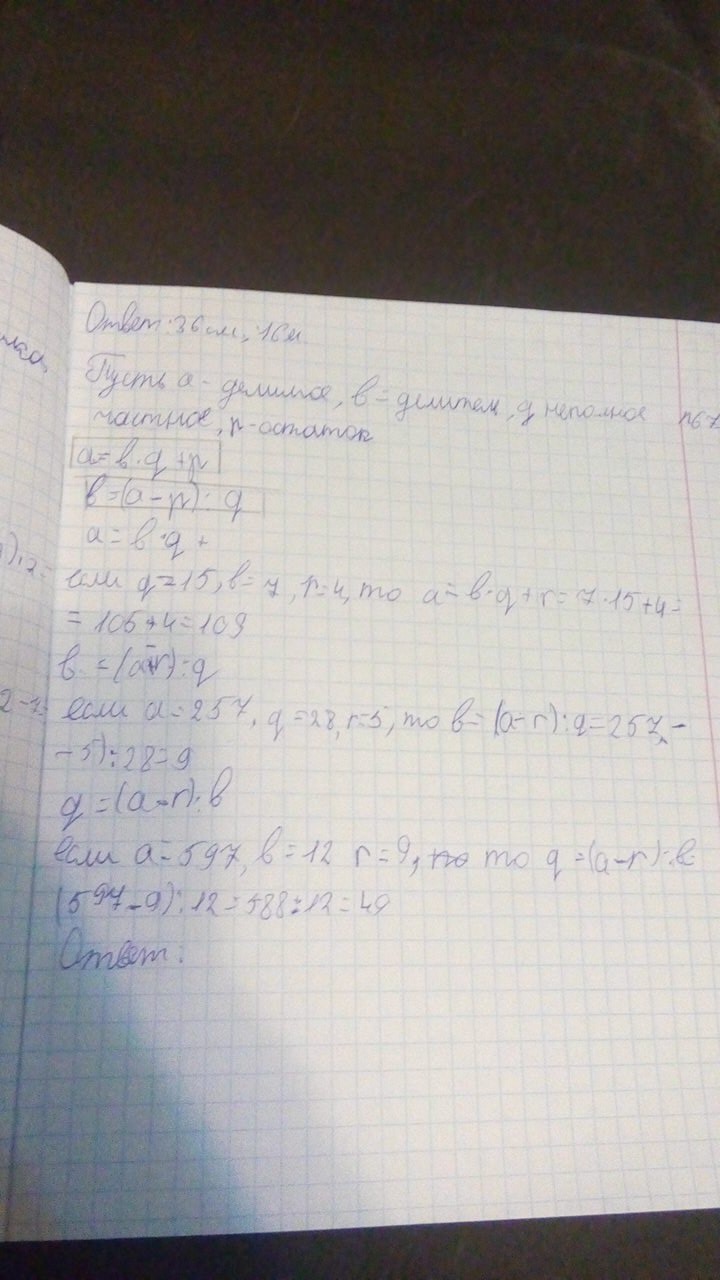 Ответ: 36 см, 16 м
Пусть а - делимое, в = делитель, q неполное
частное, r - остаток
a = в · q + r
в = (a - r) : q
a = в · q +
если q = 15, в = 7, r = 4, то a = в · q + r = 7 · 15 + 4 =
= 105 + 4 = 109
в = (a - r) : q
если a = 257, q = 28, r = 5, то в = (a - r) : q = 257 -
- 5) : 28 = 9
q = (a - r) : в
если a = 597, в = 12 r = 9, то q = (a - r) : в =
(597 - 9) : 12 = 588 : 12 = 49
Ответ: